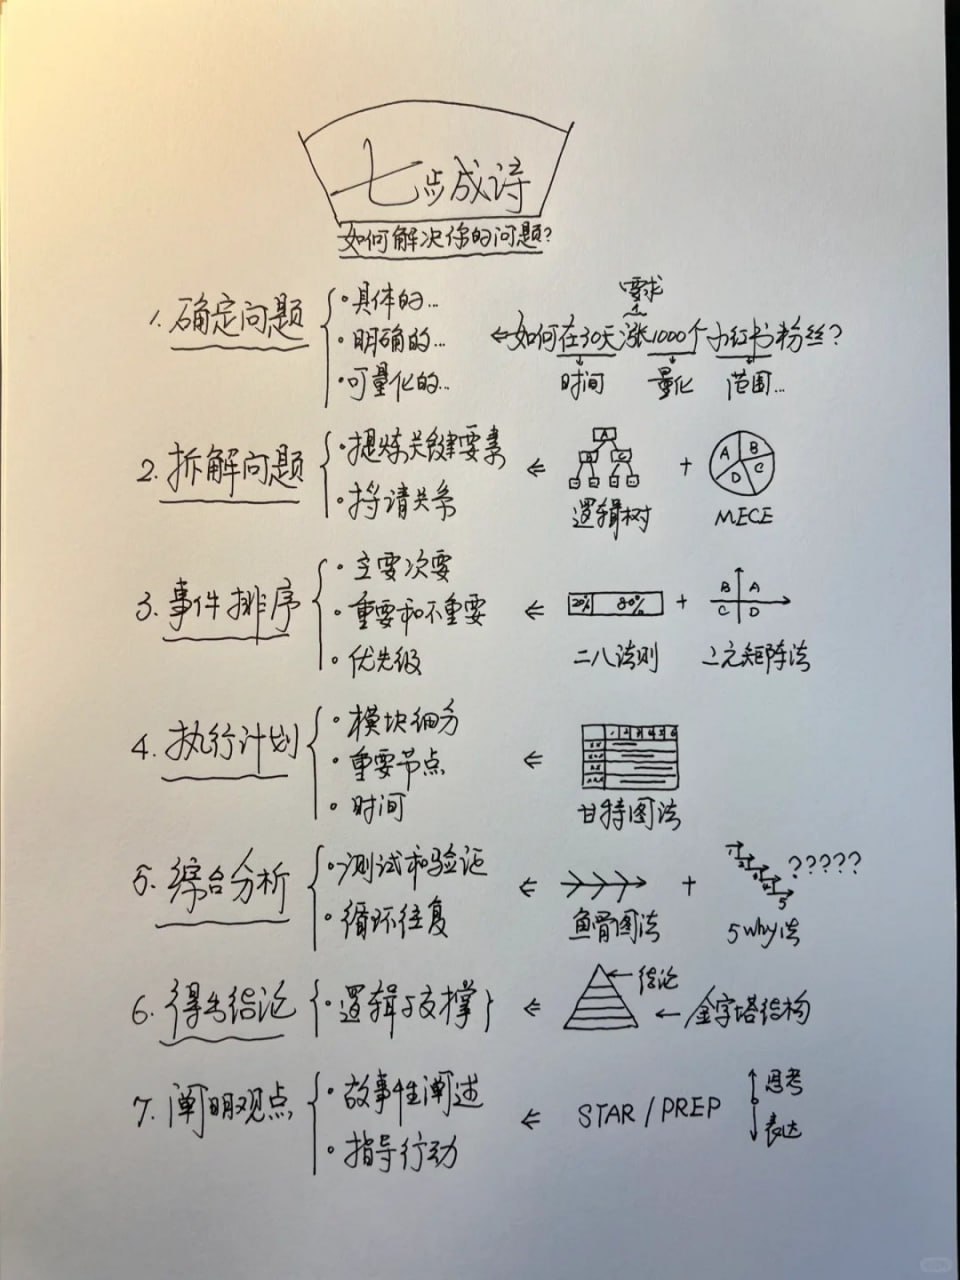 七步成诗
如何解决你的问题?
1. 确定问题
·具体的...
·明确的...
·可量化的...
要求
如何在30天涨1000个小红书粉丝?
时间 量化 范围...
2. 拆解问题
·提炼关键要素
·捋请关系
A
逻辑树
+
A B C D
MECE
3. 事件排序
·主要次要
·重要和不重要
·优先级
20% 80%
二八法则
+
B A
C D
二元矩阵法
4. 执行计划
·模块细分
·重要节点
·时间
1 2 3 4 5 6
甘特图法
5. 综合分析
·测试和验证
·循环往复
鱼骨图法
+
?????
5
5why法
6. 得出结论
·逻辑与支撑
结论
金字塔结构
7. 阐明观点
·故事性阐述
·指导行动
STAR/PREP
思考
表达